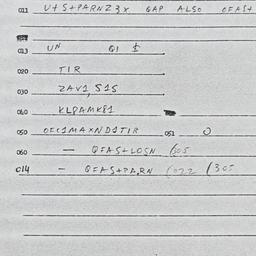 011 U+S+PARNZ3X GAP ALSO OFAS+
013 UN QI $
020 TIR
030 ZAV1, S1S
040 KLPAMK81
050 OFC1MAXND1TIR 051 O
060 — QFAS+LOSN 1505
014 — QFAS+PARN 1022 1305